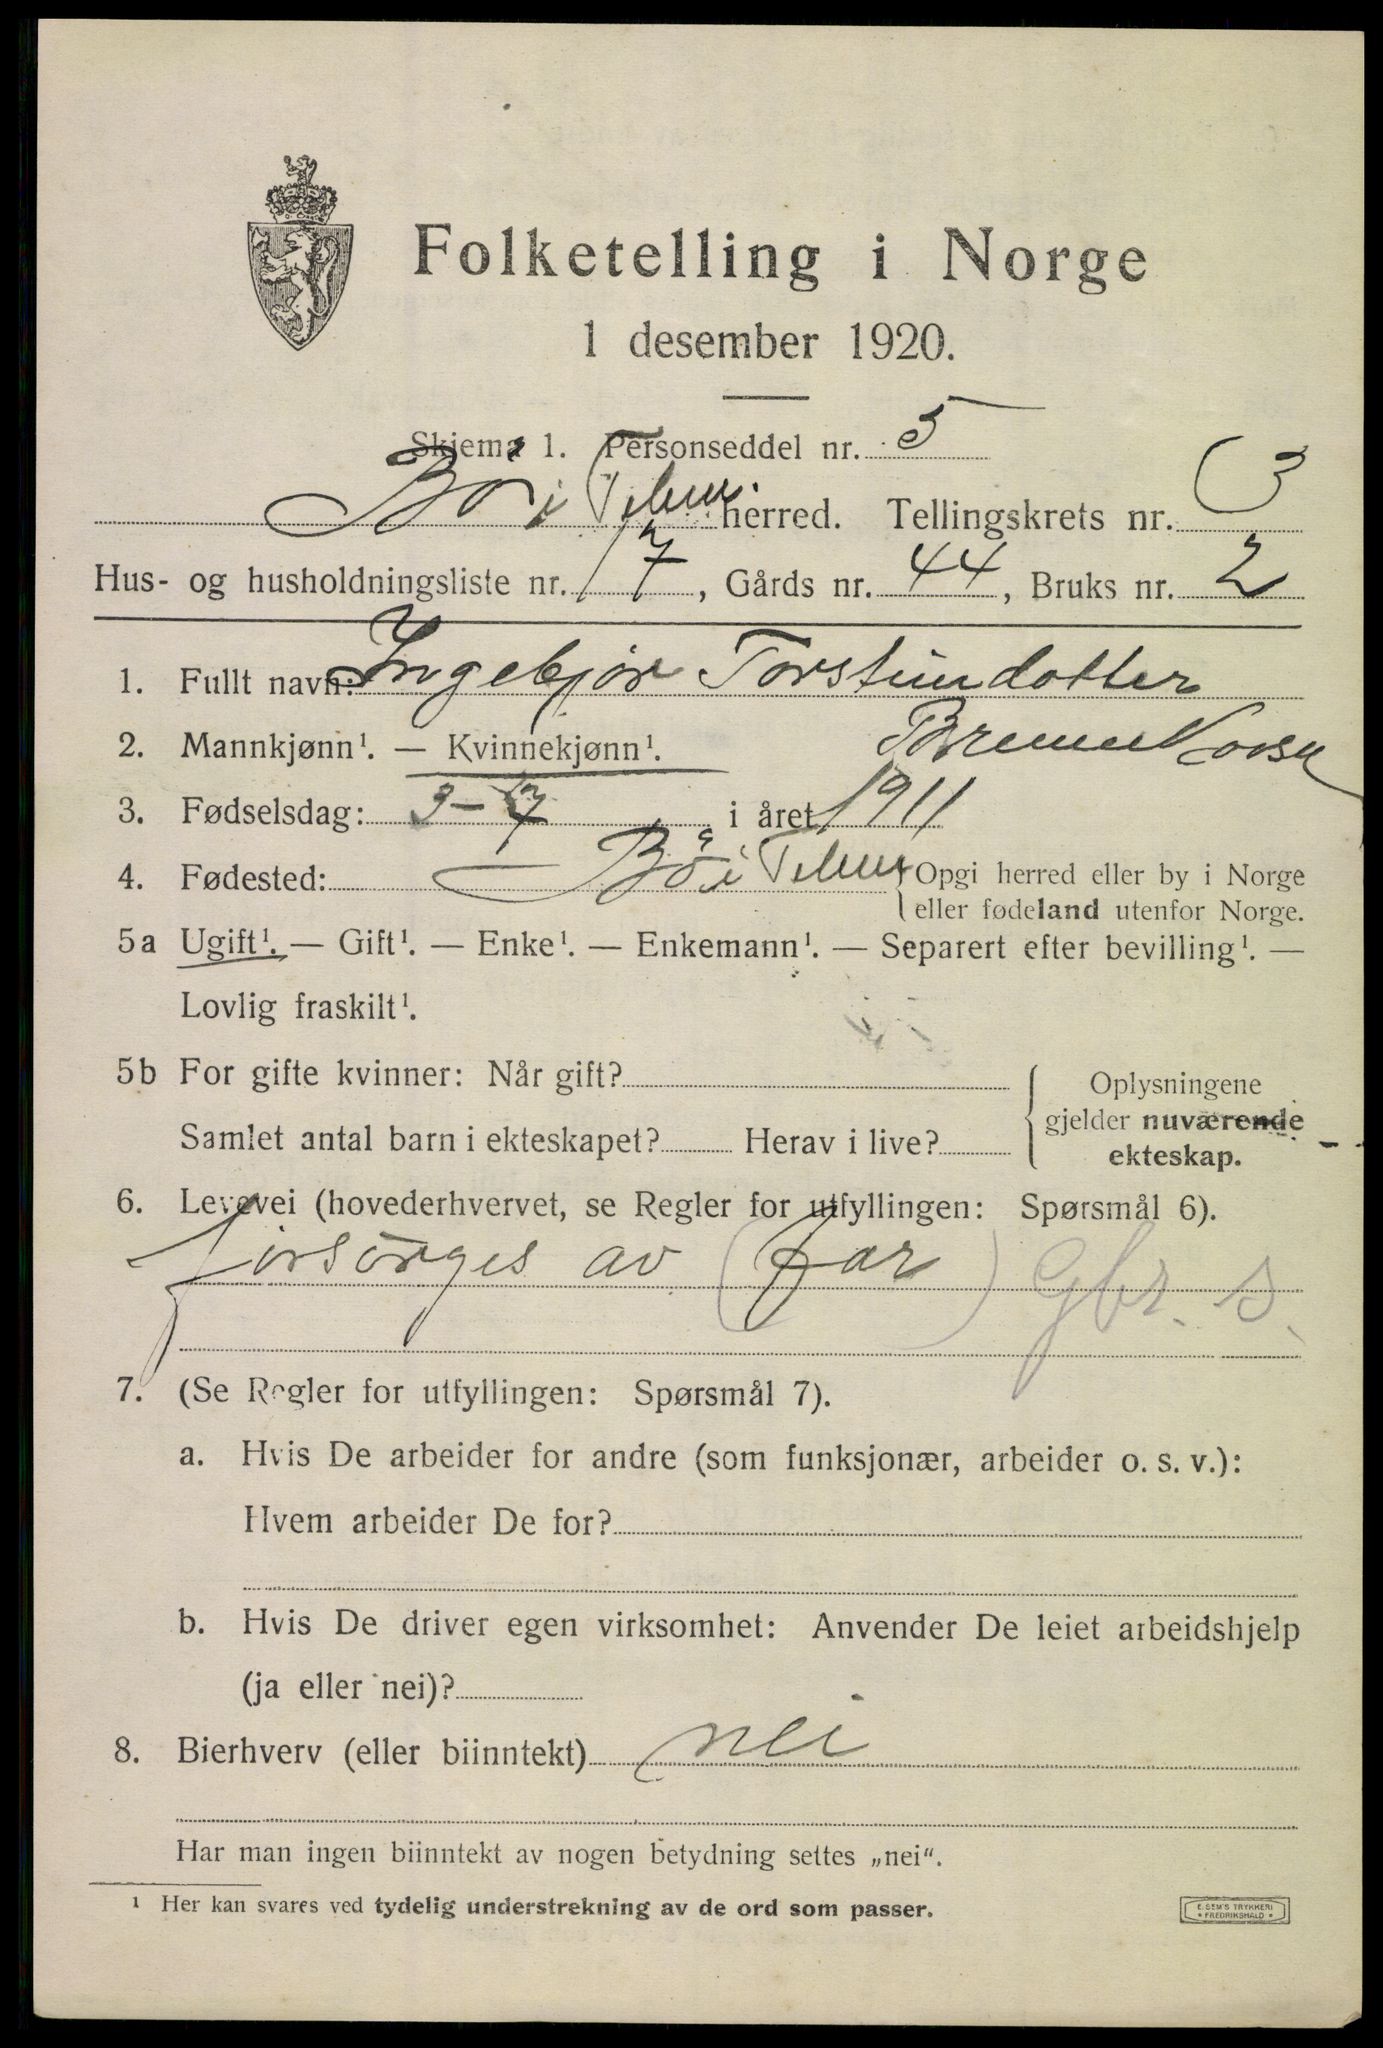 Folketelling i Norge
1 desember 1920.
Skjema 1. Personseddel nr. 5
Bø i Telem. herred. Tellingskrets nr. 3
Hus- og husholdningsliste nr. 17, Gårds nr. 44, Bruks nr. 2
1. Fullt navn: Ingebjør Torsteindotter
2. Mannkjønn¹. — Kvinnekjønn¹.
3. Fødselsdag: 3-7 i året 1911
4. Fødested: Bø i Telem { Opgi herred eller by i Norge
eller fødeland utenfor Norge.
5a Ugift¹. — Gift¹. — Enke¹. — Enkemann¹. — Separert efter bevilling¹. —
Lovlig fraskilt¹.
5b For gifte kvinner: Når gift?
Samlet antal barn i ekteskapet? Herav i live?
Oplysningene
gjelder nuværende
ekteskap.
6. Levevei (hovederhvervet, se Regler for utfyllingen: Spørsmål 6).
forsørges av (far) Gbr. s.
7. (Se Regler for utfyllingen: Spørsmål 7).
a. Hvis De arbeider for andre (som funksjonær, arbeider o. s. v.):
Hvem arbeider De for?
b. Hvis De driver egen virksomhet: Anvender De leiet arbeidshjelp
(ja eller nei)?
8. Bierhverv (eller biinntekt) nei
Har man ingen biinntekt av nogen betydning settes „nei“.
¹ Her kan svares ved tydelig understrekning av de ord som passer.
E. SEM'S TRYKKERI
* FREDRIKSHALD *